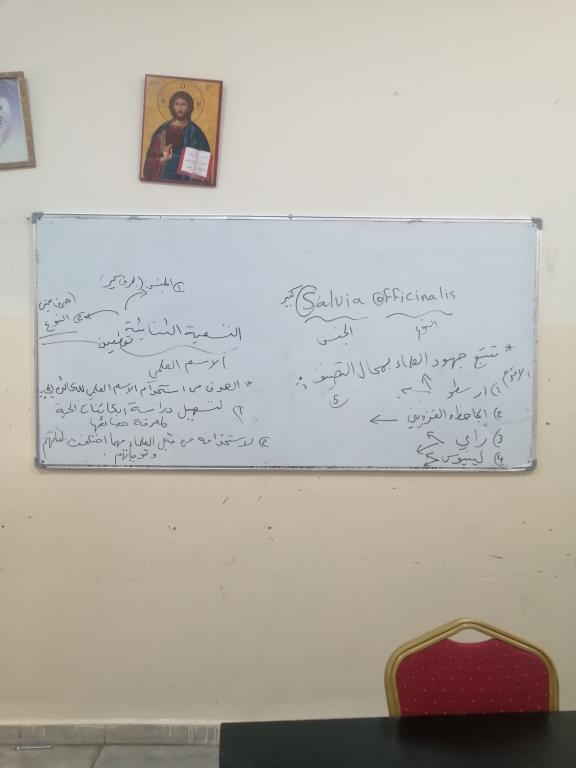 كبير Salvia officinalis
الجنس النوع
* تتبع جهود العلماء بمجال التصنيف :
الأقدم
① ارسطو
② الجاحظ والقزويني ←
③ راي
④ لينيوس
① الجنس (الحرف كبير)
② النوع (حرف صغير)
التسمية الثنائية
الاسم العلمي
* الهدف من استخدام الاسم العلمي للكائن الحي:
① لتسهيل دراسة الكائنات الحية
لمعرفة خصائصها
② لاستخدامه من قبل العلماء مهما اختلفت لغاتهم
وقومياتهم